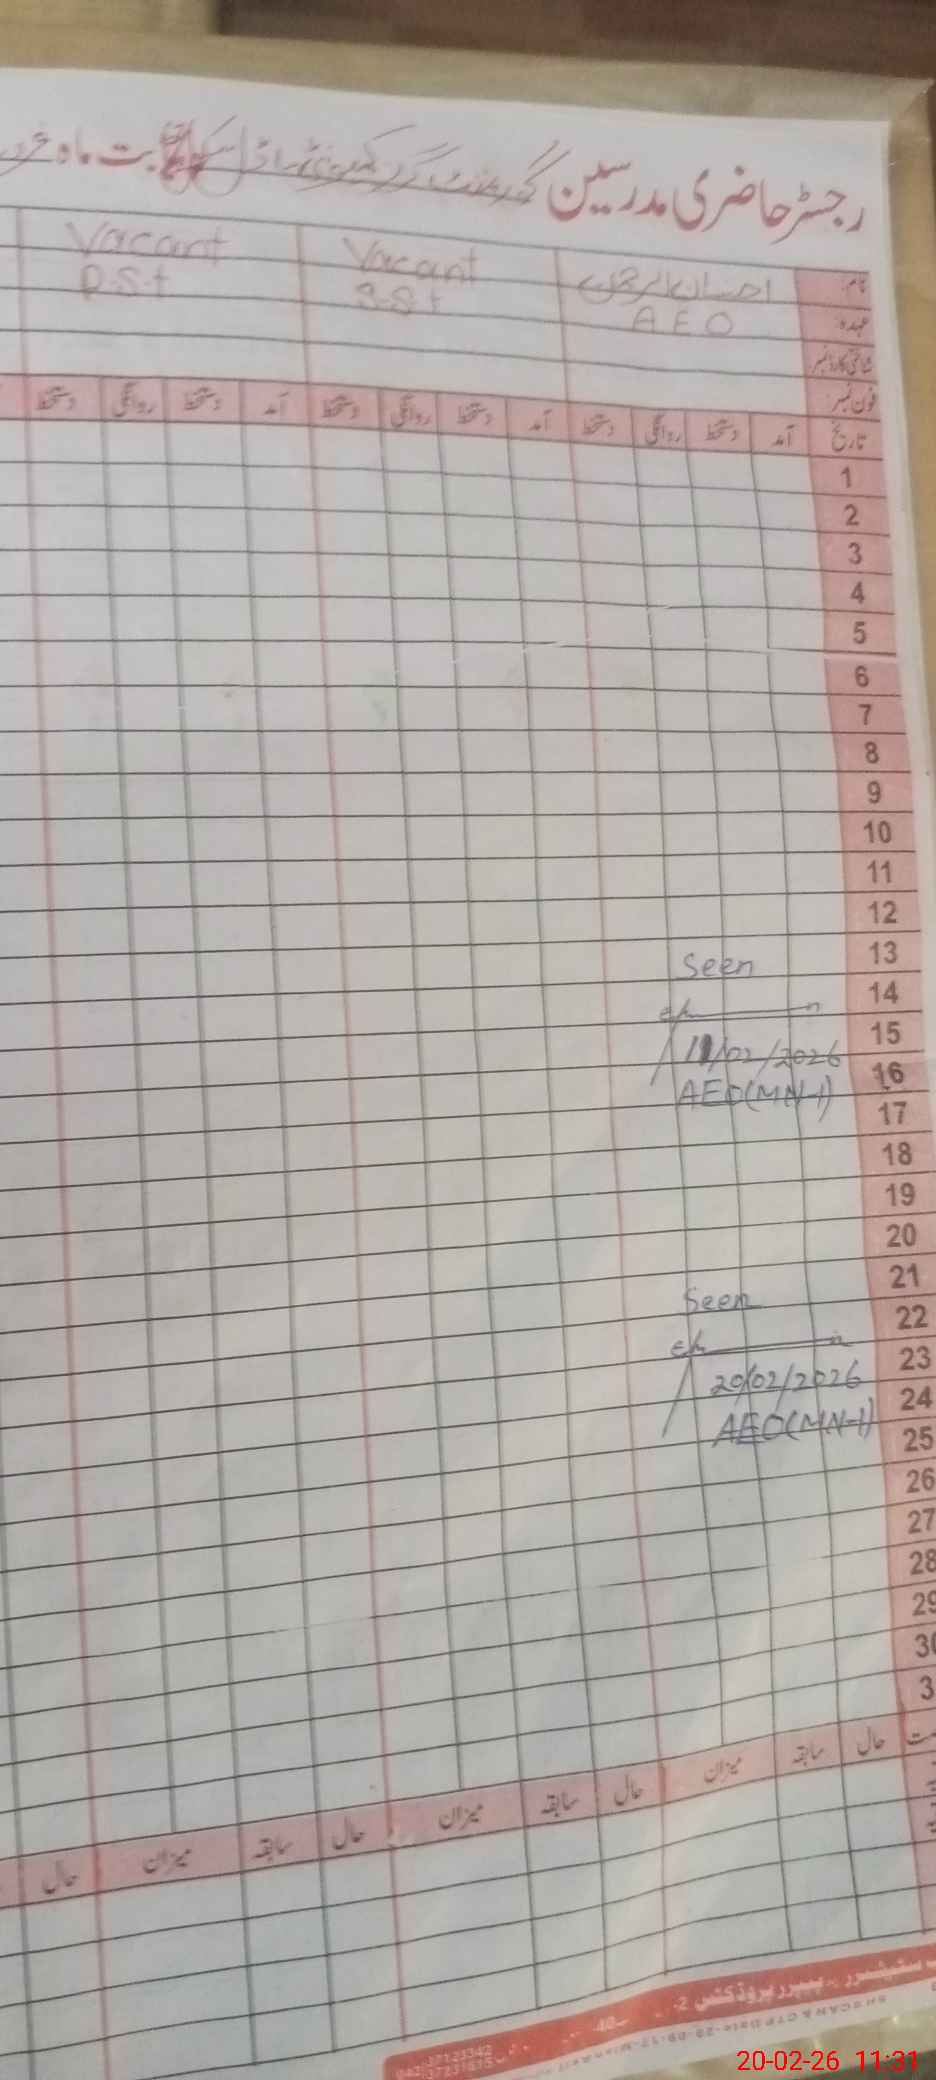 رجسٹر حاضری مدرسین گورنمنٹ گرلز کمیونٹی ماڈل سکول بابت ماہ
نام: احسان الرحمن Vacant Vacant
عہدہ: AEO S.S.t P.S.t
شناختی کارڈ نمبر
فون نمبر:
تاریخ آمد دستخط روانگی دستخط آمد دستخط روانگی دستخط آمد دستخط روانگی دستخط
1
2
3
4
5
6
7
8
9
10
11
12
13
Seen
14
15
11/02/2026
16
AEO(MN-1)
17
18
19
20
21
Seen
22
23
20/02/2026
24
AEO(MN-1)
25
26
27
28
29
حال سابقہ میزان حال سابقہ میزان حال سابقہ میزان حال
پیپر پروڈکٹس 2-
37123342
37231615
20-02-26 11:31